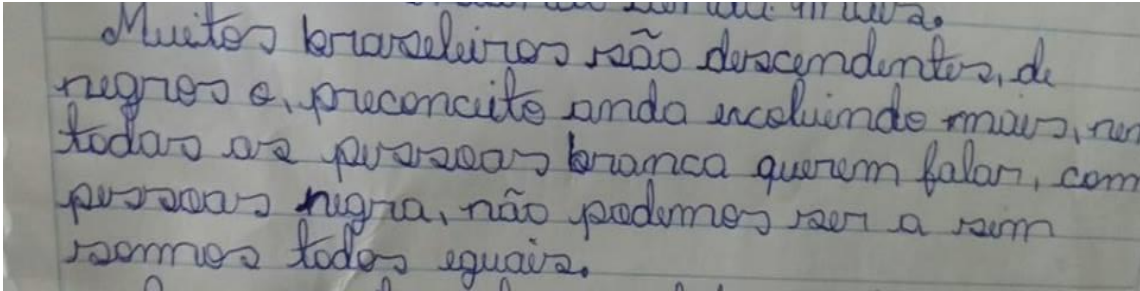 Muitos braseleiros são descendentes, de
negros e, preconceito anda escoluindo mais, nem
todas as pessoas branca querem falar, com
pessoas negra, não podemos ser a sim
somos todos eguais.